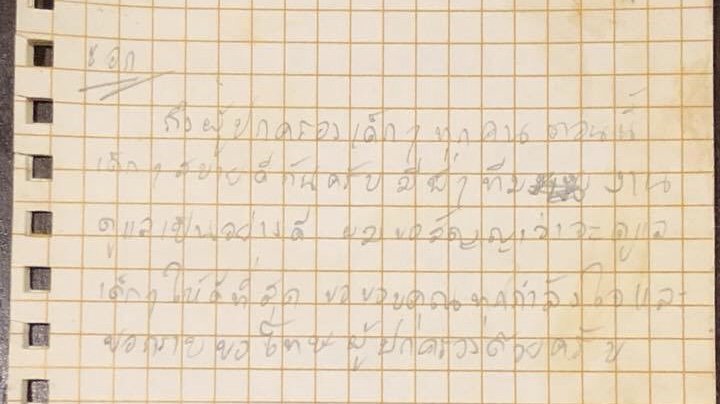 ถึงผู้ปกครองเด็กๆ ทุกคน ตอนนี้
เด็กๆ สบายดีกันครับ มีพี่ๆ ทีมงาน
ดูแลเป็นอย่างดี ผมขอสัญญาว่าจะดูแล
เด็กๆ ให้ดีที่สุด ขอขอบคุณทุกกำลังใจและ
ขอกราบขอโทษผู้ปกครองด้วยครับ